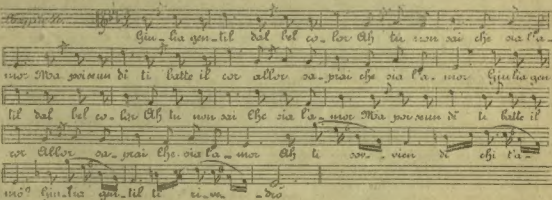 Giu-lia gen-til dal bel co-lor Ah tu non sai che sia l'a-
mor Ma poi se un dì ti batte il cor allor sa-prai che sia l'a-mor Giulia gen
til dal bel co-lor Ah tu non sai Che sia l'a-mor Ma poi se un dì ti batte il
cor Allor sa-prai Che sia l'a-mor Ah ti sov-vien di chi t'a-
mò? Giu-lia gen-til ti ri-ve-drò